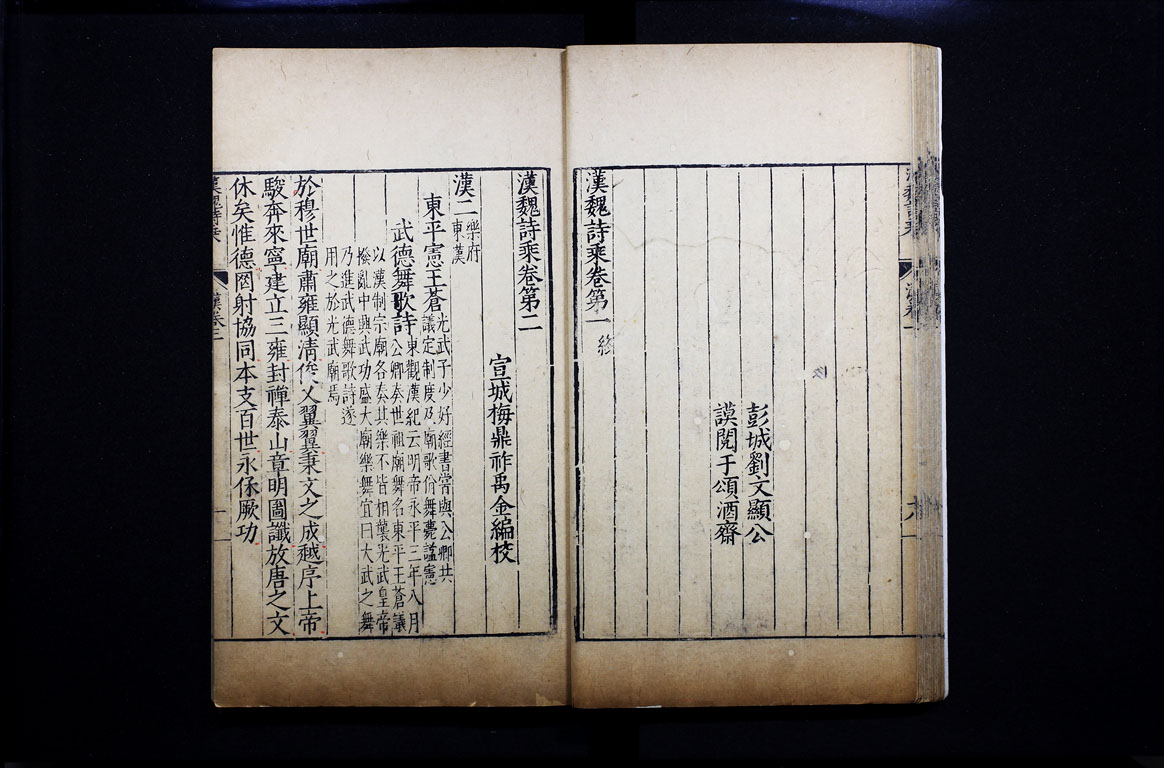 彭城劉文顯公
謨閱于頌酒齋
漢魏詩乘卷第一 終
漢魏詩乘卷第二
宣城梅鼎祚禹金編校
漢二 樂府
東漢
東平憲王蒼 光武子少好經書嘗與公卿共
議定制度及廟歌佾舞薨謚憲
武德舞歌詩 東觀漢紀云明帝永平三年八月
公卿奏世祖廟舞名東平王蒼議
以漢制宗廟各奏其樂不皆相襲光武皇帝
撥亂中興武功盛大廟樂舞宜曰大武之舞
乃進武德舞歌詩遂
用之於光武廟焉
於穆世廟肅雍顯清俊乂翼翼秉文之成越序上帝
駿奔來寧建立三雍封禪泰山章明圖讖放唐之文
休矣惟德罔射協同本支百世永保厥功
漢魏詩乘 漢卷二